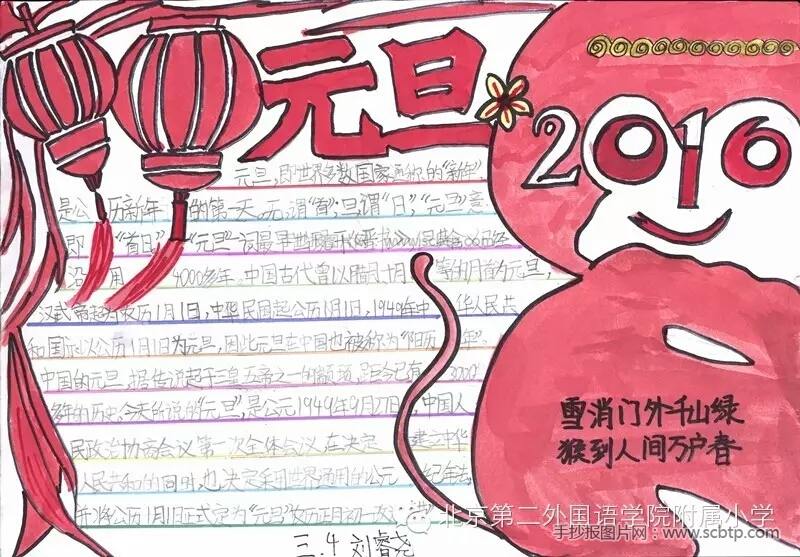 元旦
2016
元旦,即世界多数国家通称的“新年”,
是公历新年的第一天。元,谓“首”;旦,谓“日”;“元旦”意
即“首日”。“元旦”一词最早出现于《晋书
沿用4000多年。中国古代曾以腊月、十月等的月首为元旦,
汉武帝起为农历1月1日,中华民国起公历1月1日,1949年中华人民共
和国亦以公历1月1日为元旦,因此元旦在中国也被称为“阳历年”。
中国的元旦,据传说起于三皇五帝之一的颛顼,距今已有3000
多年的历史。今天所说的“元旦”,是公元1949年9月27日,中国人
民政治协商会议第一次全体会议,在决定建立中华
人民共和国的同时,也决定采用世界通用的公元纪年法
并将公历1月1日正式定为“元旦”,农历正月初一改
雪消门外千山绿
猴到人间万户春
三.4 刘睿尧
北京第二外国语学院附属小学
手抄报图片网:www.scbtp.com